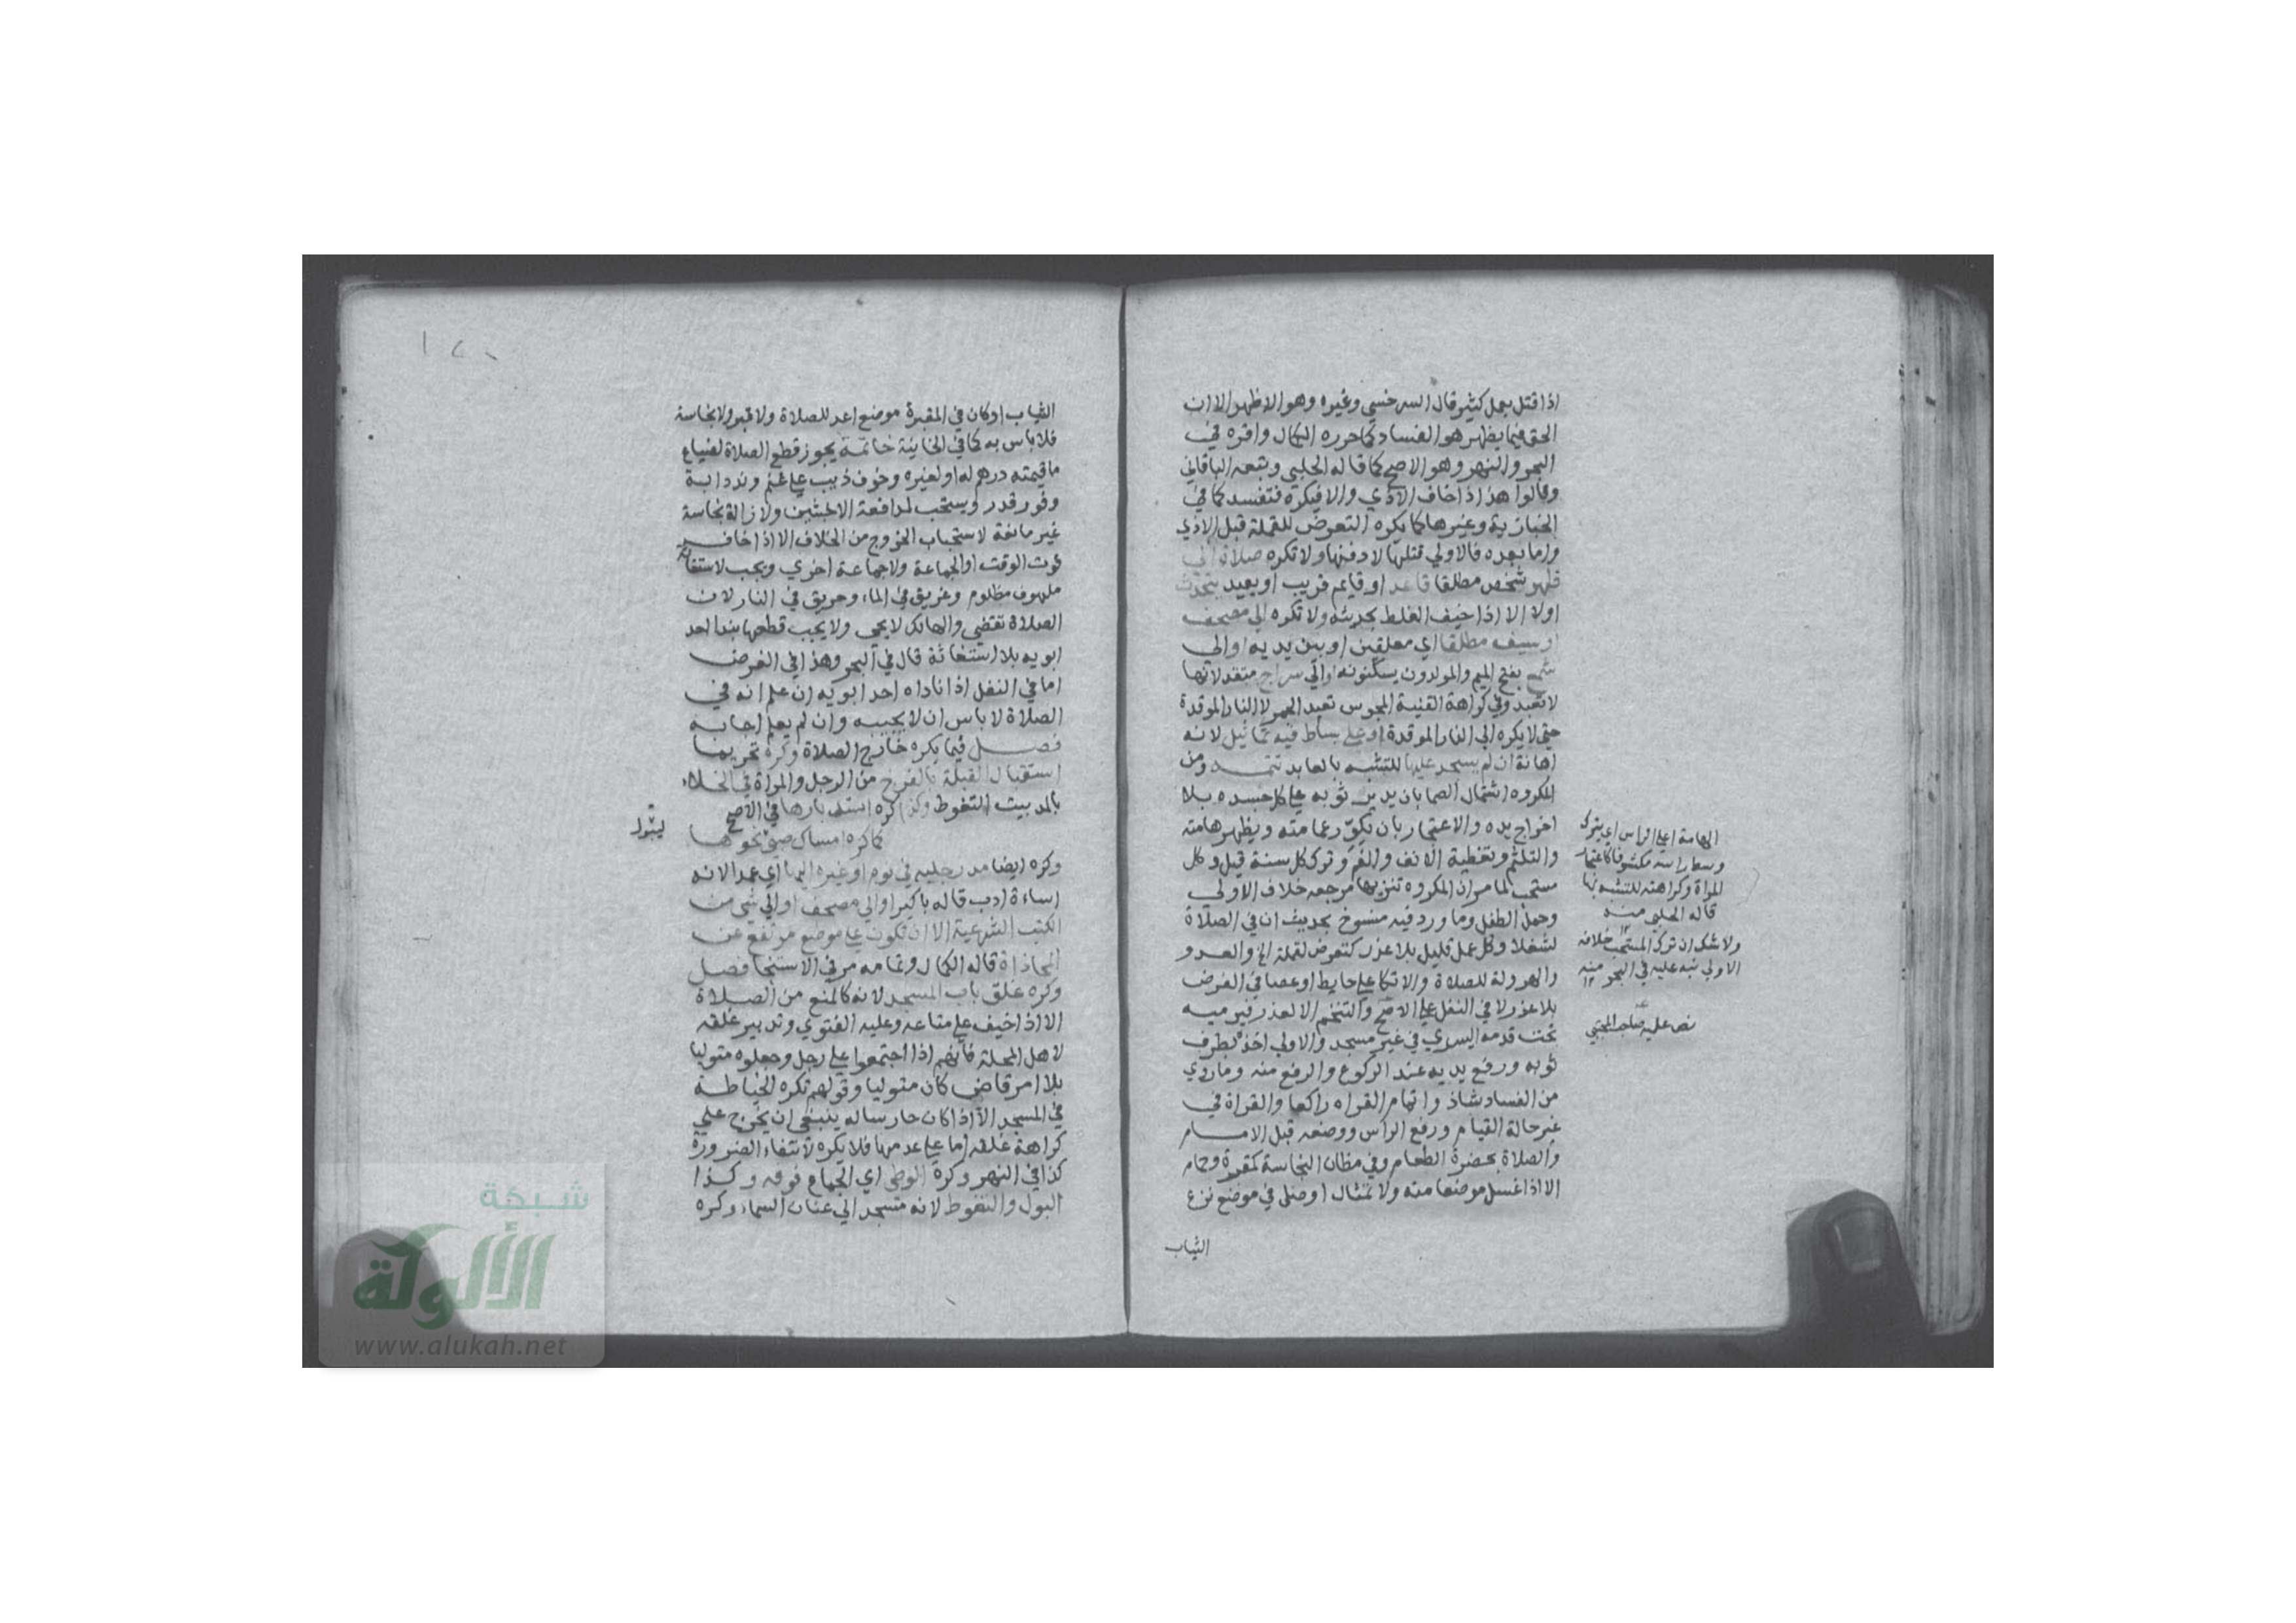 اذا قتل بعمل كثير قال السرخسي وغيره وهو الاظهر الا ان
الحق فيما يظهر هو الفساد كما حرره الكمال واقره في
البحر والنهر وهو الاصح كما قاله الحلبي وتبعه الباقاني
وقالوا هذا اذا خاف الاذي والا فيكره فتفسد كما في
الخبازية وغيرها كما يكره التعرض للقملة قبل الاذي
واما بعده فالاولي قتلها لا دفنها ولا تكره صلاة الى
ظهر شخص مطلقا قاعد او قايم قريب او بعيد يتحدث
اولا الا اذا خيف الغلط بحديثه ولا تكره الي مصحف
او سيف مطلقا اي معلقين او بين يديه او الى
شمع بفتح الميم والمولدون يسكنونه او الي سراج متقد لانها
لا تعبد وفي كراهة القنية المجوس تعبد الجمر لا النار الموقدة
حتي لا يكره الي النار الموقدة او على بساط فيه تماثيل لانه
اهانة ان لم يسجد عليها للتشبه بالعابد تتمـــه ومن
المكروه اشتمال الصما بان يدير ثوبه علي كل جسده بلا
اخراج يده والاعتجار بان يكور عمامته ويظهر هامته
والتلثم وتغطية الانف والفم وترك كل سنة قيل وكل
مستحب لما مر ان المكروه تنزيها مرجعه خلاف الاولى
وحمل الطفل وما ورد فيه منسوخ بحديث ان في الصلاة
لشغلا وكل عمل قليل بلا عذر كتعرض لقملة الخ والعدو
والهرولة للصلاة والاتكا علي حايط او عصا في الفرض
بلا عذر لا في النفل علي الاصح والتنخم الا لعذر فيرميه
تحت قدمه اليسري في غير مسجد والاولي اخذه بطرف
ثوبه ورفع يديه عند الركوع والرفع منه وما روي
من الفساد شاذ واتمام القراه راكعا والقراة في
غير حالة القيام ورفع الراس ووضعه قبل الامـــام
والصلاة بحضرة الطعام وفي مظان النجاسة كمقبرة وحمام
الا اذا غسل موضعا منه ولا تمثال او صلى في موضع نزع
الثياب
الهامة اعلي الراس اي يترك
وسط راسه مكشوفا كاعتجار
المراة وكراهته للتشبه بها
قاله الحلبي منه
١٢
ولا شك ان ترك المستحب خلاف
الاولي نبه عليه في البحر منه ١٢
نص عليه صاحب المجتبي
الثياب او كان في المقبرة موضع اعد للصلاة ولا قبر ولا نجاسة
فلا باس به كما في الخانية خاتمـة يجوز قطع الصلاة لضياع
ما قيمته درهم له او لغيره وخوف ذيب علي غنم وند دابة
وفور قدر ويستحب لمدافعة الاخبثين ولازالة نجاسة
غير مانعة لاستحباب الخروج من الخلاف الا اذا خاف
فوت الوقت او الجماعة ولا جماعة اخري ويجب لاستغاثة
ملهوف مظلوم وغريق في الماء وحريق في النار لان
الصلاة تقتضي والهالك لا يحي ولا يجب قطعها بندا احد
ابويه بلا استغاثة قال في البحر وهذا في الفرض
اما في النفل اذا ناداه احد ابويه ان علم انه في
الصلاة لا باس ان لا يجيبه وان لم يعلم اجابه
فصـــل فيما يكره خارج الصلاة وكره تحريما
استقبال القبلة بالفرج من الرجل والمراة في الخلاء
بالمد بيت التغوط وكذا كره استدبارها في الاصح
كما كره امساك صبي نحوهـا
ليبول
وكره ايضا مد رجليه في نوم او غيره اليها اي عمدا لانه
اساءة ادب قاله باكير او الي مصحف او الي شي من
الكتب الشرعية الا ان تكون علي موضع مرتفع عن
المحاذاة قاله الكمال وتمامه مر في الاستنجا فصل
وكره غلق باب المسجد لانه كالمنع من الصـلاة
الا اذا خيف علي متاعه وعليه الفتوي وتدبير غلقه
لاهل المحلة فانهم اذا اجتمعوا علي رجل وجعلوه متوليا
بلا امر قاضي كان متوليا وقولهم تكره الخياطـة
في المسجد الا اذا كان حارسا له ينبغي ان يخرج علي
كراهة غلقه اما علي عدمها فلا يكره لانتفاء الضرورة
كذا في النهر وكره الوطي اي الجماع فوقه وكـذا
البول والتغوط لانه مسجد الي عنان السماء وكره
شبكة
الألوكة
www.alukah.net